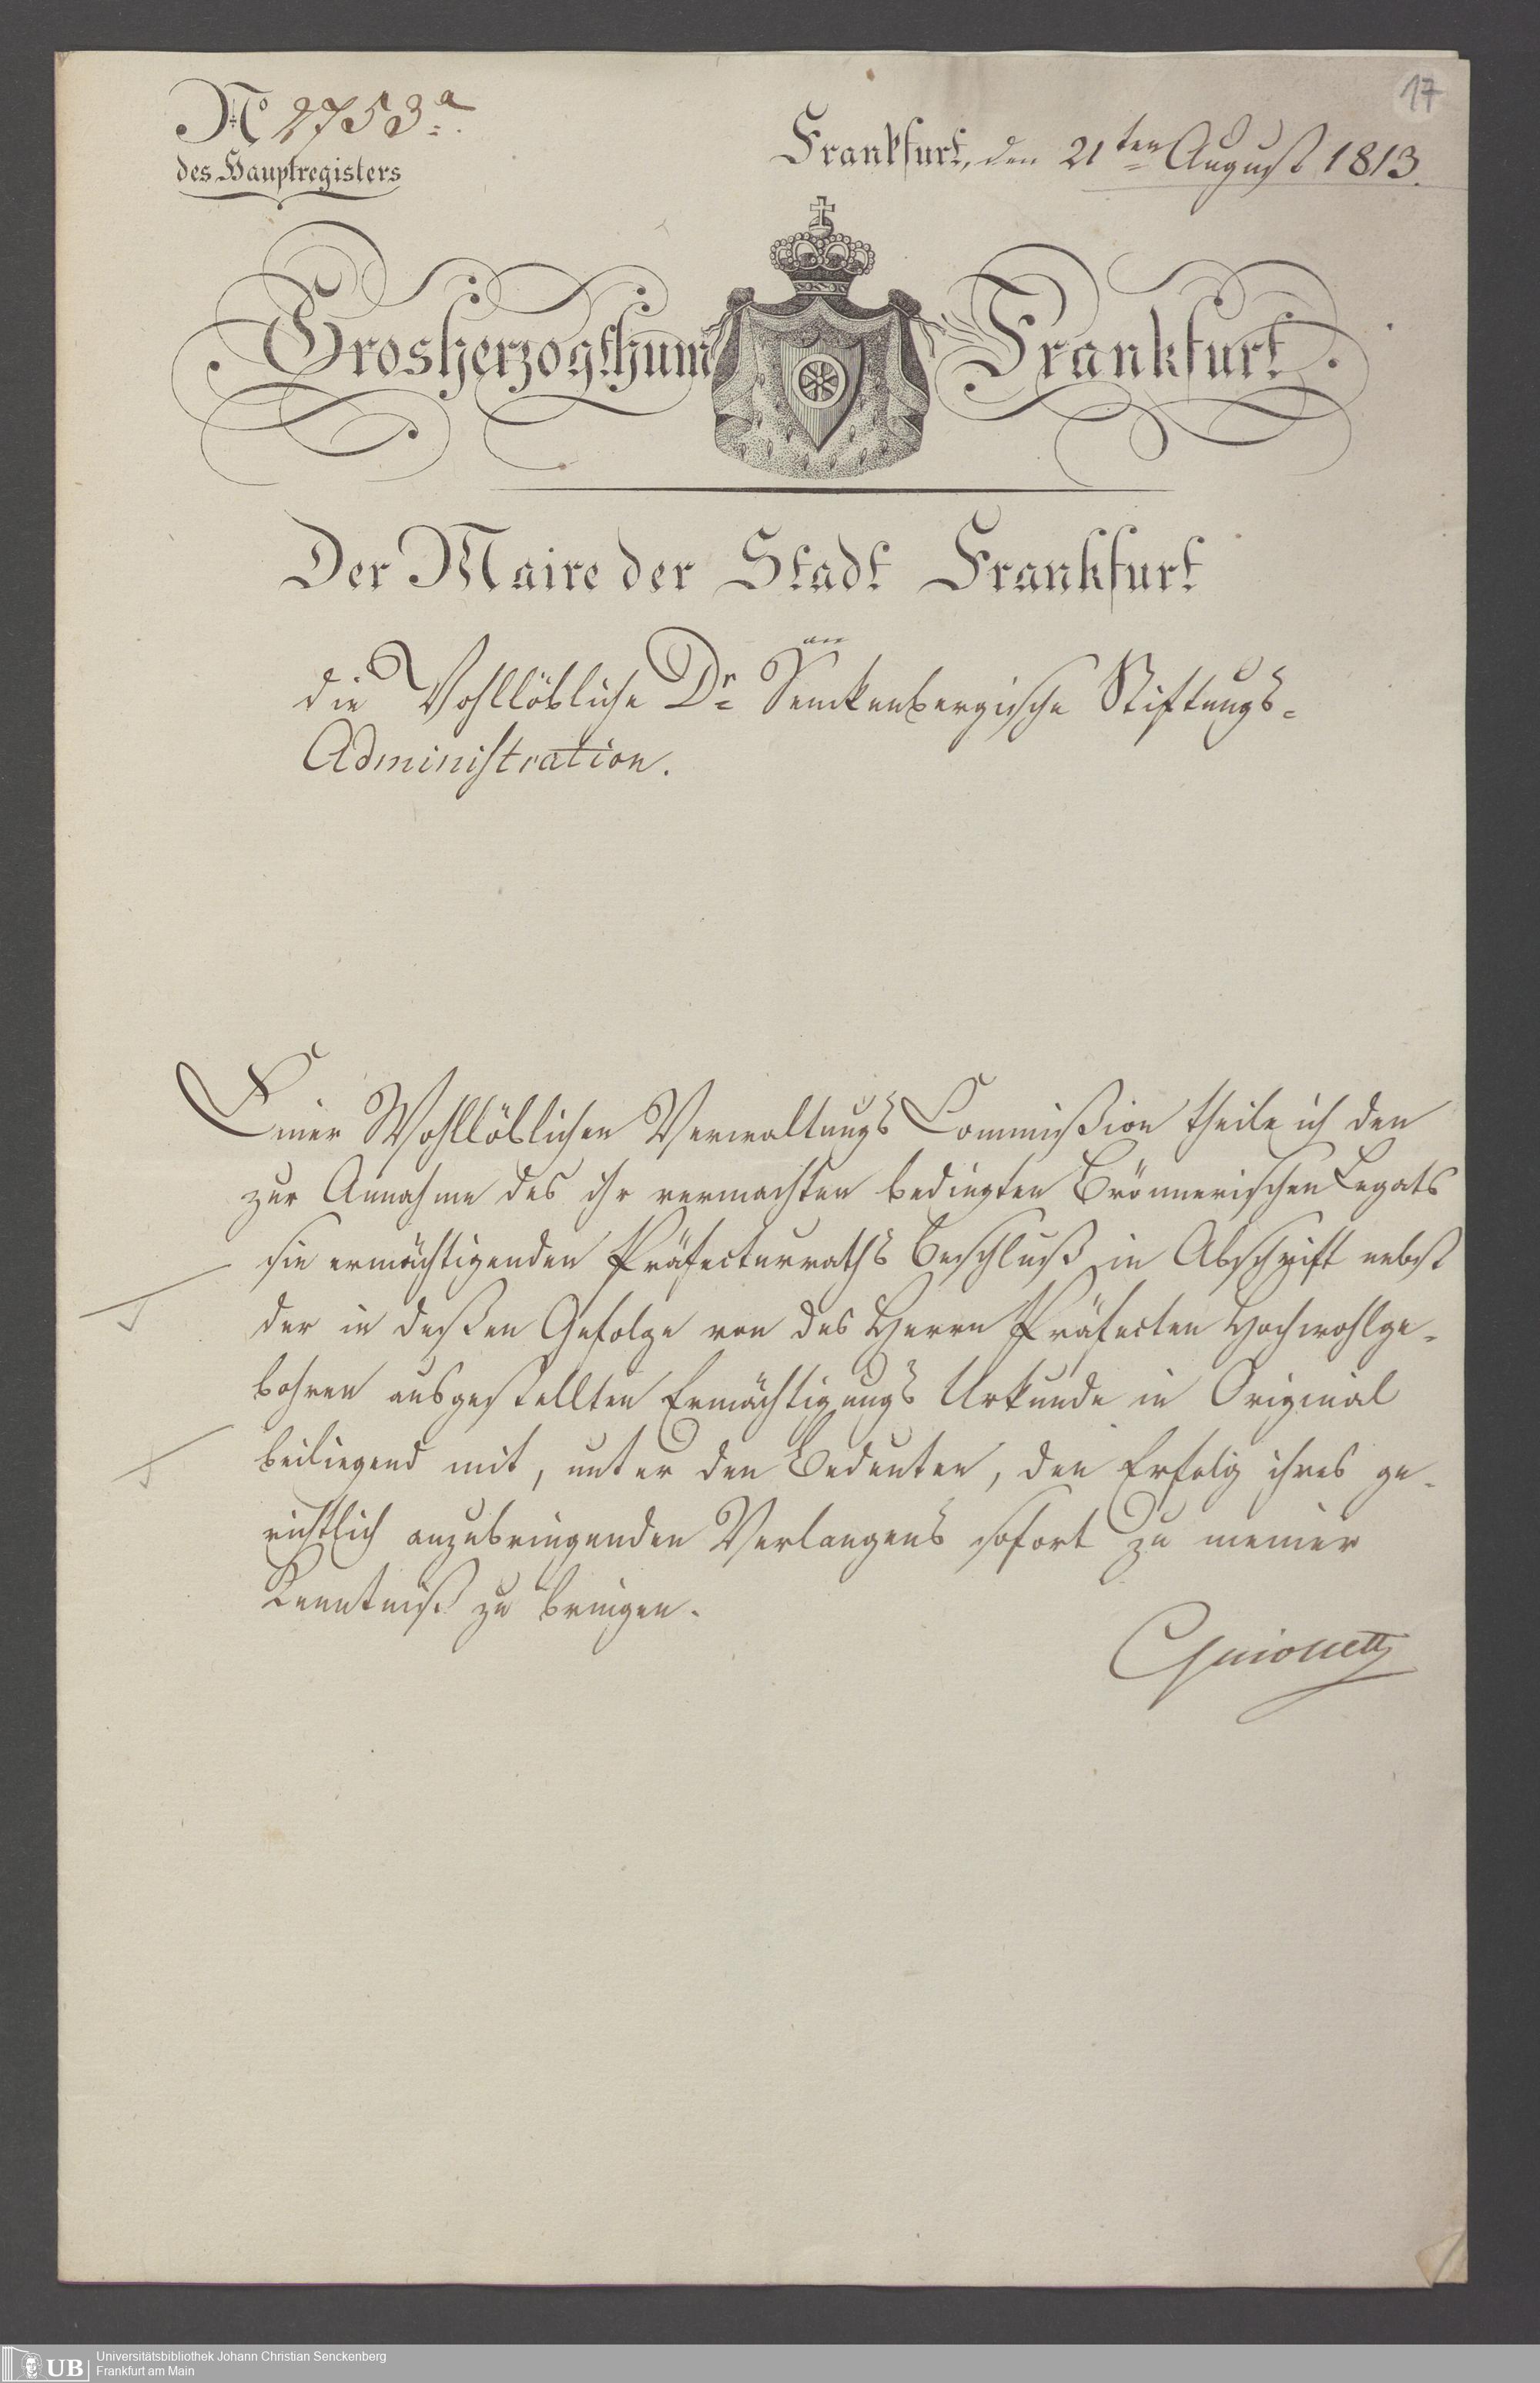 17
No 2753a.
des Hauptregisters
Frankfurt, den 21ten August 1813.
Grosherzogthum Frankfurt
Der Maire der Stadt Frankfurt
an
die Wohllöbliche Dr Senckenbergische Stiftungs-
Administration.
Einer Wohllöblichen Verwaltungs Commißion theile ich den
zur Annahme des ihr vermachten bedingten Brönnerischen Legats
sie ermächtigenden Präfecturraths Beschluß in Abschrift nebst
der in deßen Gefolge von des Herrn Präfecten Hochwohlge-
bohren ausgestellten Ermächtigungs Urkunde in Original
beiliegend mit, unter den Bedeuten, den Erfolg ihres ge-
richtlich anzubringenden Verlangens sofort zu meiner
Kenntniß zu bringen.
Guiollett
UB
Universitätsbibliothek Johann Christian Senckenberg
Frankfurt am Main